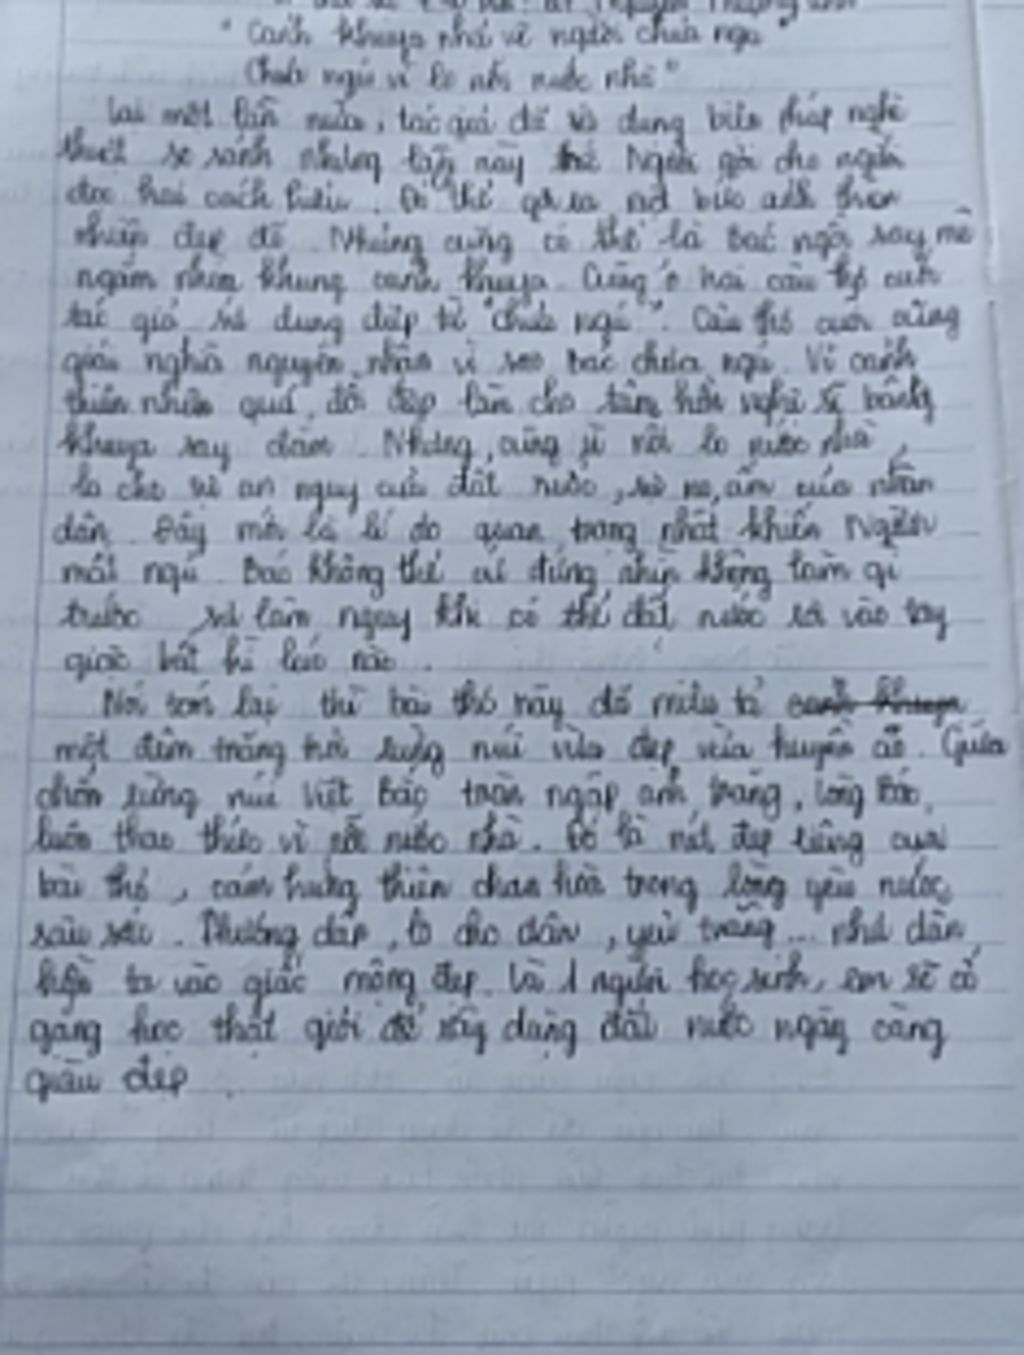 " Cảnh khuya như vẽ người chưa ngủ
Chưa ngủ vì lo nỗi nước nhà "
Lại một lần nữa, tác giả đã sử dụng biện pháp nghệ
thuật so sánh nhưng lần này thì Người gợi cho người
đọc hai cách hiểu. Có thể gợi ra một bức tranh thiên
nhiên đẹp đẽ. Nhưng cũng có thể là Bác ngồi say mê
ngắm nhìn khung cảnh khuya. Cũng ở hai câu thơ cuối
tác giả sử dụng điệp từ "chưa ngủ". Câu thơ cuối cũng
giải nghĩa nguyên nhân vì sao Bác chưa ngủ. Vì cảnh
thiên nhiên quá đỗi đẹp làm cho tâm hồn nghệ sĩ bâng
khuya say đắm. Nhưng cũng vì nỗi lo nước nhà,
lo cho sự an nguy của đất nước, sự no, ấm của nhân
dân. Đây mới là lí do quan trọng nhất khiến Người
mất ngủ. Bác không thể cứ đứng nhìn không làm gì
trước sự lâm nguy khi có thể đất nước rơi vào tay
giặc bất kì lúc nào.
Nói tóm lại thì bài thơ này đã miêu tả cảnh khuya
một đêm trăng núi rừng núi vừa đẹp vừa huyền ảo. Giữa
chốn rừng núi Việt Bắc tràn ngập ánh trăng, lòng Bác
luôn thao thức vì nỗi nước nhà. Đó là nét đẹp riêng của
bài thơ, cảm hứng thiên chan hòa trong lòng yêu nước
sâu sắc. đáp, lo cho dân, yêu trăng... như dẫn
hồn ta vào giấc mộng đẹp. Là 1 người học sinh, em sẽ cố
gắng học thật giỏi để xây dựng đất nước ngày càng
giàu đẹp.